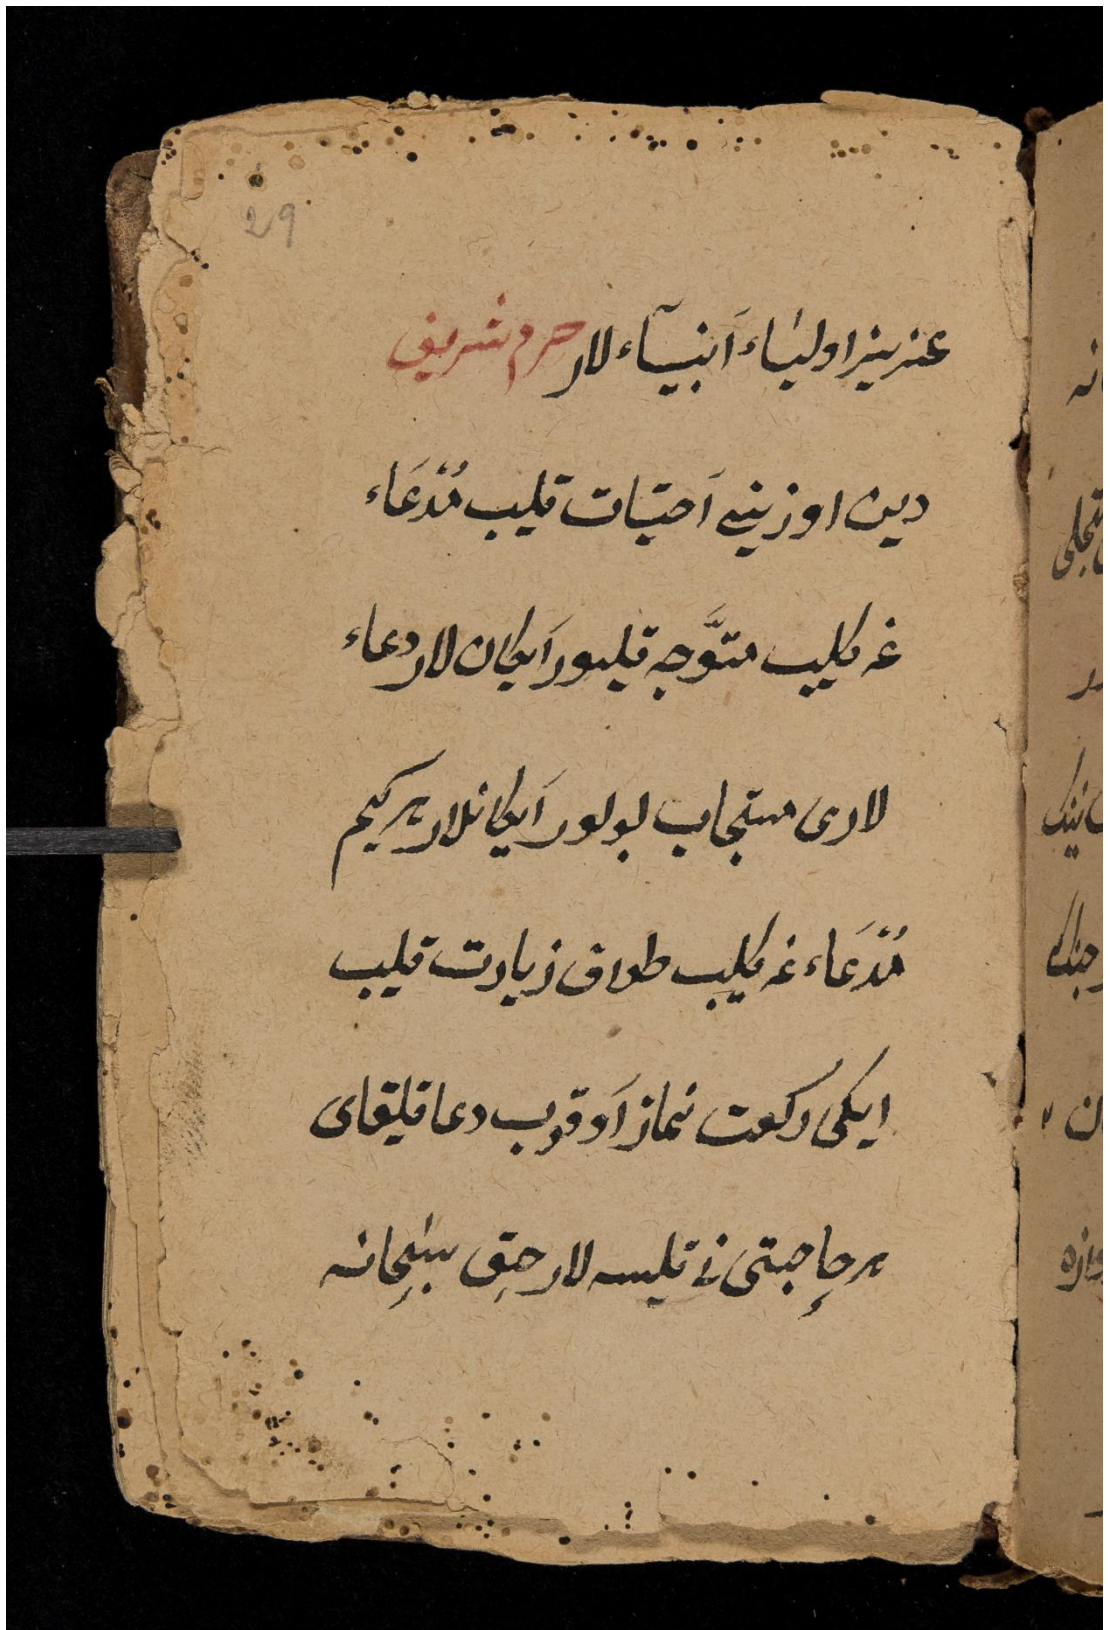 29
عزیز اولیاء اَنبیآء لار حرم شریف
دین اوزینی اَحتیات قلیب مُدَعاء
غه کلیب متوَّجه قلیور اَیکان لار دعاء
لاری مستجاب بولور اَیکانلار هر کیم
مُدَعاء غه کلیب طواف زیارت قلیب
ایکی رکعت نماز اَوقوب دعا قلیقای
هر حاجتی نی قلیسه لار حق سبحانه